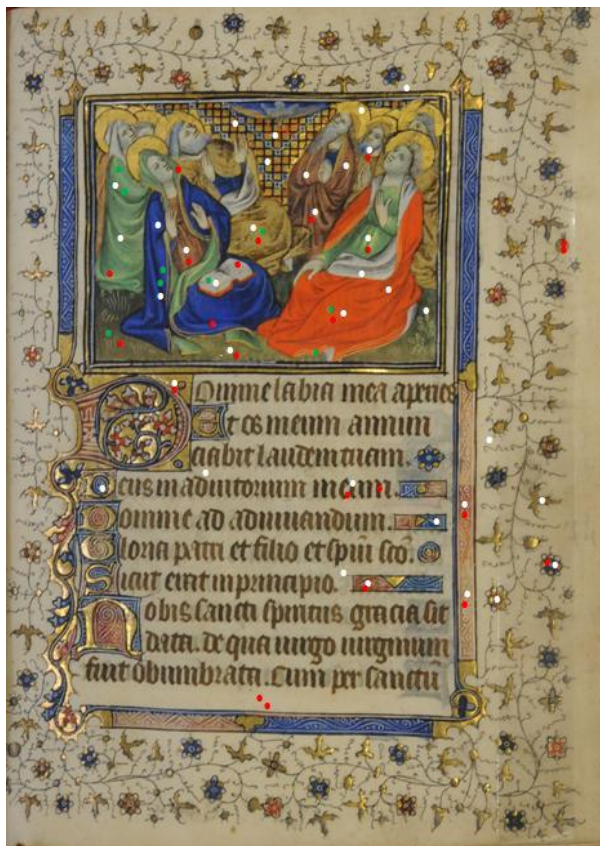 Domine labia mea aperies
et os meum annun
ciabit laudem tuam.
Deus in adiutorium meum.
Domine ad adiuuandum.
Gloria patri et filio et spiri sco.
Sicut erat in principio.
Nobis sancti spiritus gracia sit
data. de qua uirgo uirginum
fuit obumbrata. Cum per sanctū